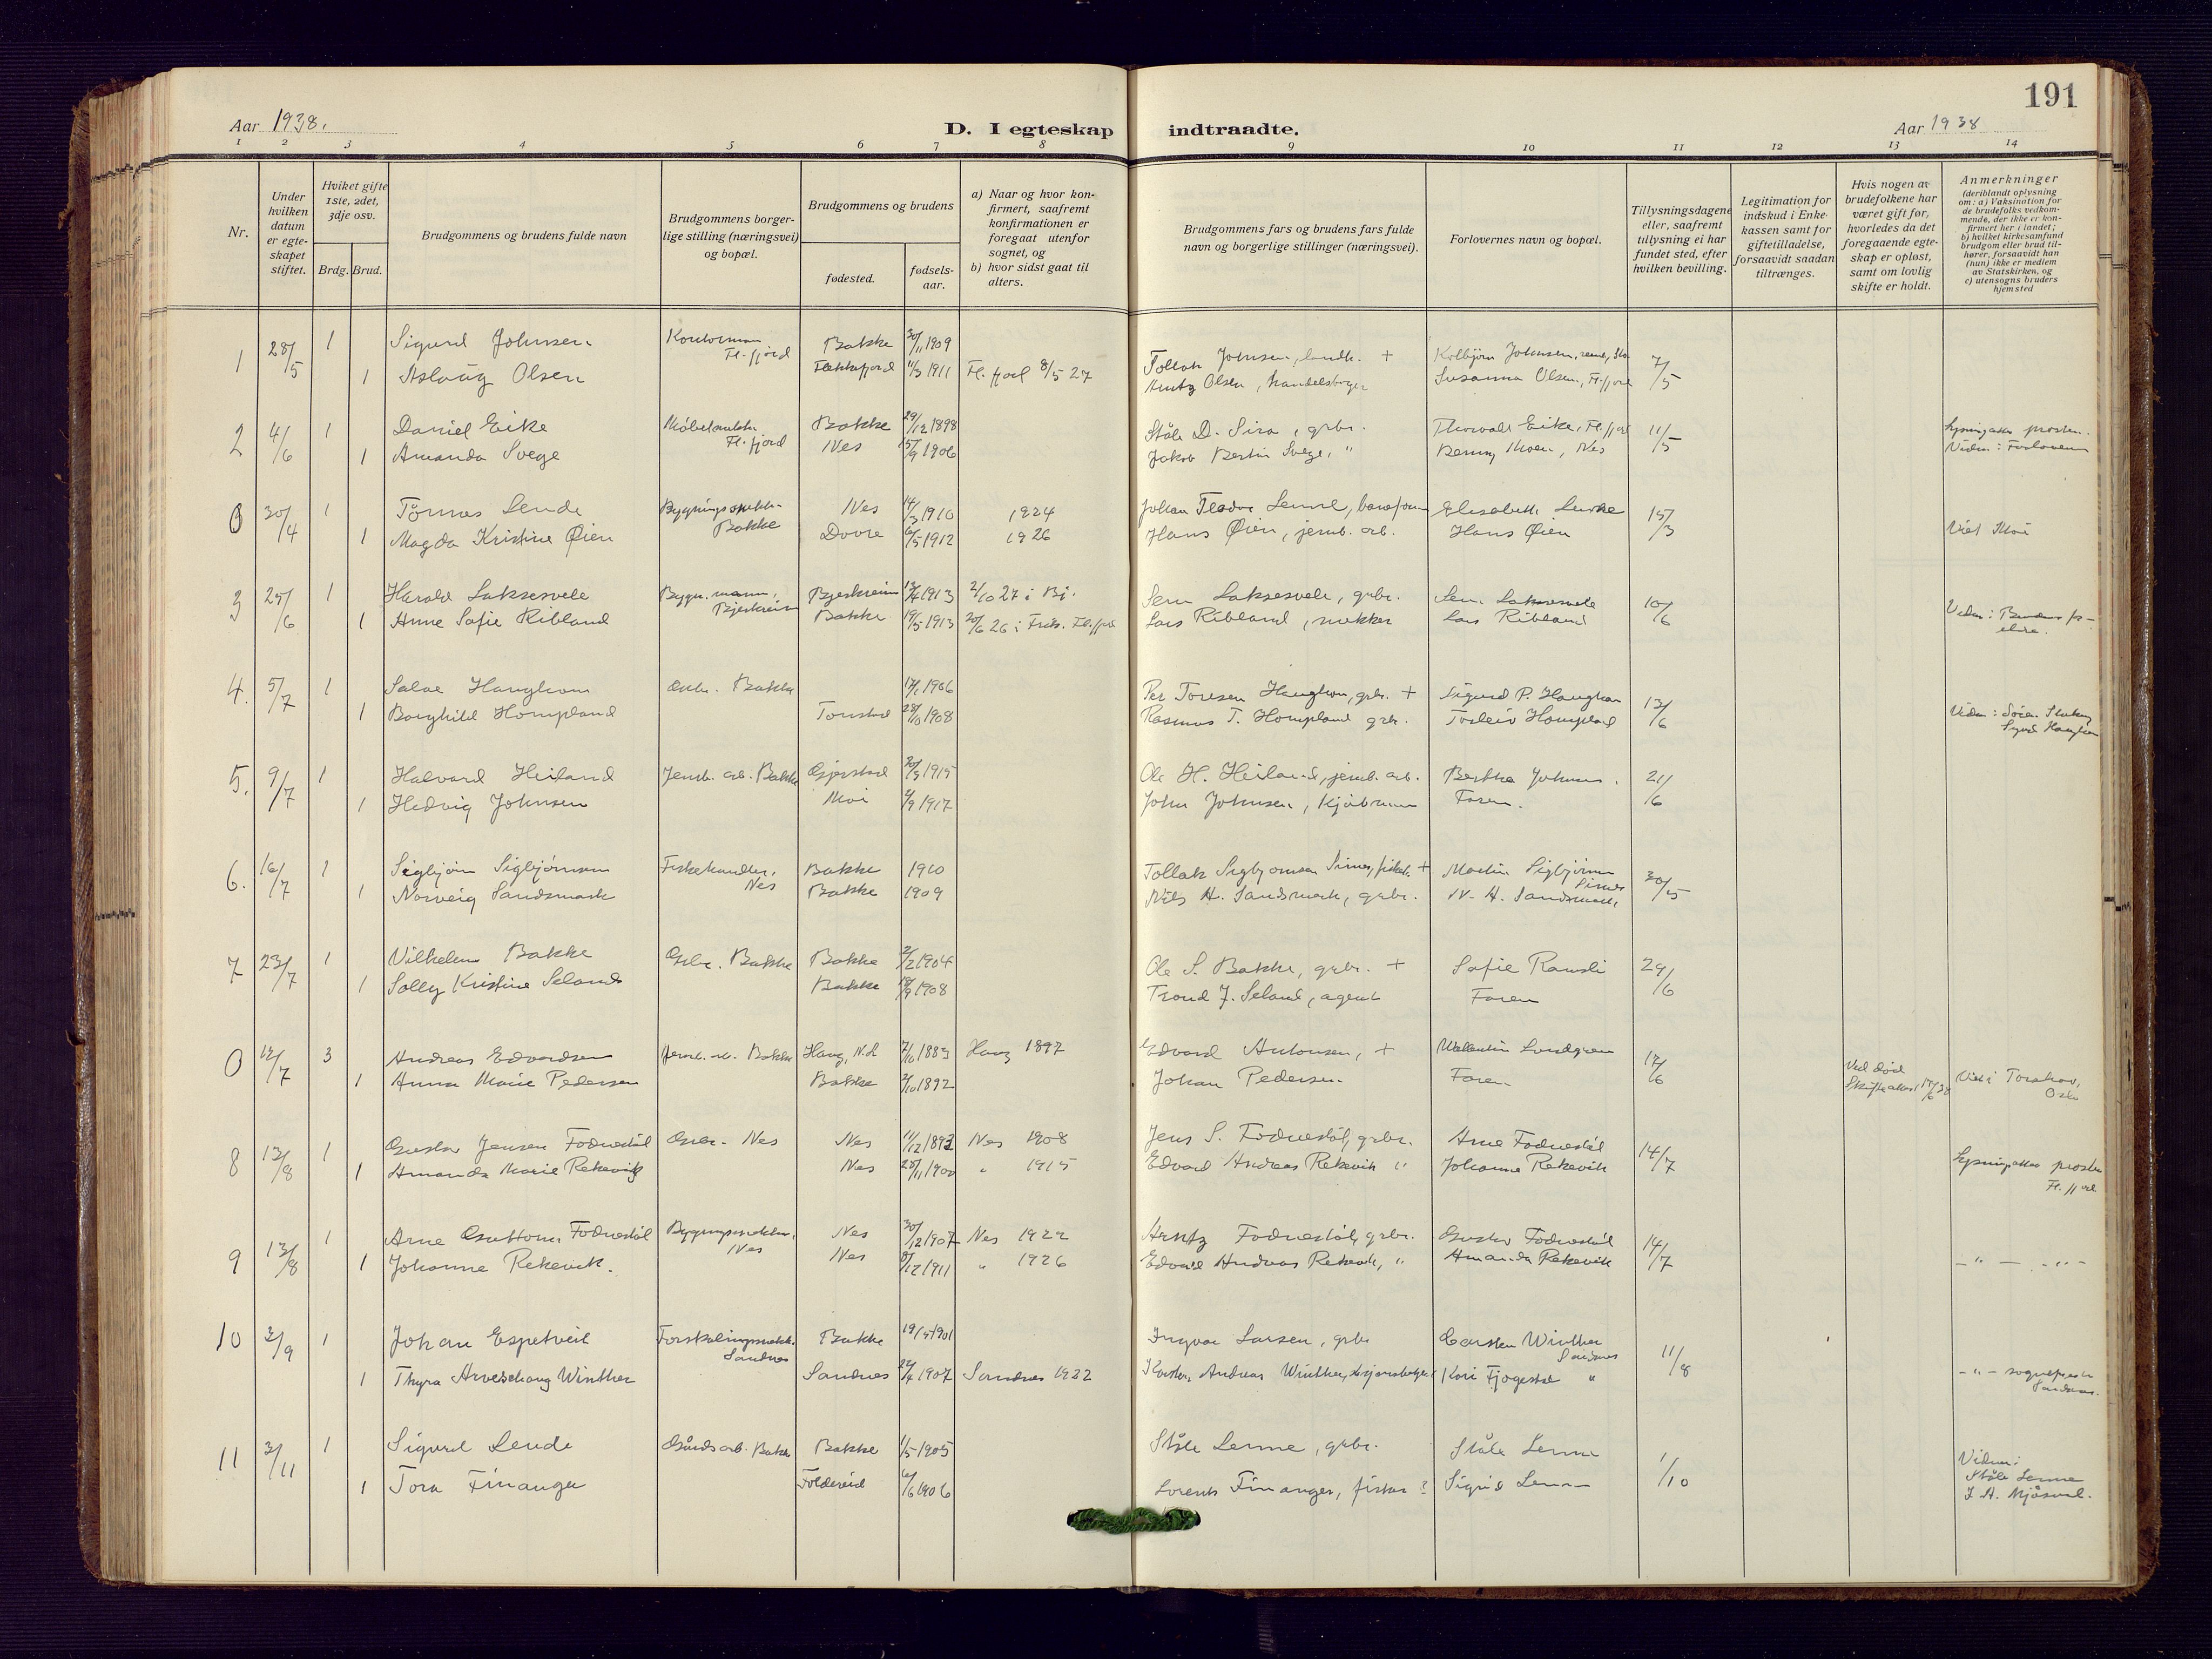 191
Aar 1938.
D. I egteskap indtraadte.
Aar 1938
1 2 3 4 5 6 7 8 9 10 11 12 13 14
Nr.
Under hvilken datum er egte-skapet stiftet.
Hviket gifte 1ste, 2det, 3dje osv.
Brdg. Brud.
Brudgommens og brudens fulde navn
Brudgommens borger-lige stilling (næringsvei) og bopæl.
Brudgommens og brudens
fødested.
fødsels-aar.
a) Naar og hvor kon-firmert, saafremt konfirmationen er foregaat utenfor sognet, og
b) hvor sidst gaat til alters.
Brudgommens fars og brudens fars fulde navn og borgerlige stillinger (næringsvei).
Forlovernes navn og bopæl.
Tillysningsdagene eller, saafremt tillysning ei har fundet sted, efter hvilken bevilling.
Legitimation for indskud i Enke-kassen samt for giftetilladelse, forsaavidt saadan tiltrænges.
Hvis nogen av brudefolkene har været gift før, hvorledes da det foregaaende egte-skap er opløst, samt om lovlig skifte er holdt.
Anmerkninger
(deriblandt oplysning om: a) Vaksination for de brudefolks vedkom-mende, der ikke er kon-firmert her i landet; b) hvilket kirkesamfund brudgom eller brud til-hører, forsaavidt han (hun) ikke er medlem av Statskirken, og c) utensogns bruders hjemsted
1 28/5 1 Sigurd Johnsen Fl.fjord Bakke 30/11 1909 Johnsen, landh. + 7/5
1 Aslaug Olsen Flekkefjord 11/3 1911 Fl.fjord 8/5 27 Arntz Olsen, Susanna Olsen, Fl.fjord
2 4/6 1 Daniel Eike Fl.fjord Bakke 29/12 1898 Ståle D. Sira, grbr. Thorvald Eike, Fl.fjord 11/5
1 Amanda Svege Nes 15/9 1906 Jakob Bertin Svege, " Benny Moen, Nes
Vidner: Forloverne
0 30/4 1 Tønnes Lende Bakke Nes 14/3 1910 1924 15/3
1 Magda Kristine Øien Dovre 6/5 1912 1926 Hans Øien, jernb. arb. Hans Øien Viet Moi
3 25/6 1 Harald Laksesvele Bygn.mann, Bjerkreim Bjerkreim 13/4 1913 2/10 27 i Bj. Sem Laksesvele, grbr. Sem Laksesvele 10/6
1 Anne Sofie Ribland Bakke 19/5 1913 20/6 26 i Lars Ribland Lars Ribland
4. 5/7 1 Salve Haughom Bakke 17/1 1906 Per Toresen Haughom, grbr. + Sigurd P. Haughom 13/6
1 Borghild Hompland Tonstad 28/10 1908 Rasmus T. Hompland grbr. Torleiv Hompland
5. 9/7 1 Halvard Heiland Jernb. arb. Bakke Gjerstad 20/3 1915 Ole H. Heiland, jernb. arb. Berthe Johnsen. 21/6
1 Hedvig Johnsen Moi 2/9 1917 John Johnsen, Faren.
6. 16/7 1 Sigbjørn Sigbjørnsen Fiskehandler, Nes Bakke 1910 Tollak Sigbjørnsen Sirnes, + Martin Sigbjørnsen Sirnes 30/5
1 Norveig Sandsmark Bakke 1909 Nils H. Sandsmark, grbr. N. H. Sandsmark,
7 23/7 1 Vilhelm Bakke Grbr. Bakke Bakke 2/2 1904 Ole S. Bakke, grbr. + Sofie Ramsli 29/6
1 Solly Kristine Seland Bakke 1908 Trond J. Seland, agent Faren
0 1 3 Andreas Edvardsen Jernb. arb. Bakke Haug, 7/10 1883 Haug 1897 Edvard Antonsen, + Lundgren 17/6
1 Anna Marie Pedersen Bakke 2/10 1892 Johan Pedersen. Faren
Ved død
Viet i Torshov, Oslo
8 13/8 1 Gustav Jensen Fodnestøl Grbr. Nes Nes 11/12 1893 Nes 1908 Jens S. Fodnestøl, grbr. Arne Fodnestøl 14/7
1 Amanda Marie Rekevik Nes 28/11 1900 " 1915 Edvard Andreas Rekevik " Johanne Rekevik
Fl.fjord
9 13/8 1 Arne Fodnestøl Nes Nes 30/12 1907 Nes 1922 Arntz Fodnestøl, grbr. Gustav Fodnestøl 14/7
1 Johanne Rekevik. Nes 8/12 1911 " 1926 Edvard Andreas Rekevik, " Amanda Rekevik
10 3/9 1 Johan Espetveit Sandnes Bakke 19/5 1901 Ingvar Larsen, grbr. Carsten Winther Sandnes 11/8
1 Thyra Winther Sandnes 22/4 1907 Sandnes 1922 Andreas Winther, Kari Fjogestad "
-"- sogneprest Sandnes.
11 3/11 1 Sigurd Lende Bakke 1/5 1905 Ståle Lenne, grbr. Ståle Lenne 1/10
1 Tora Finanger Foldereid 6/6 1906 Lorents Finanger, fisker ? Sigrid Lenne
Vidner: Ståle Lenne